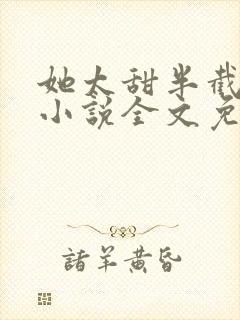 她太甜半截
小说全文免
諸羊黄昏